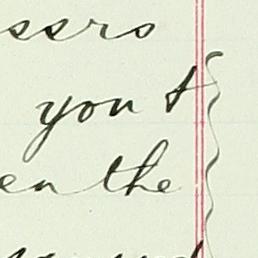 ssrs
you &
en the